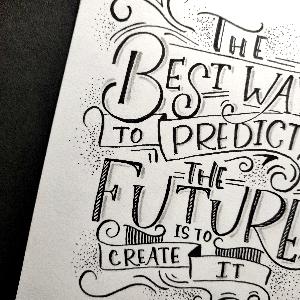 THE
BEST WA
TO PREDICT
THE
FUTURE
IS TO
CREATE IT